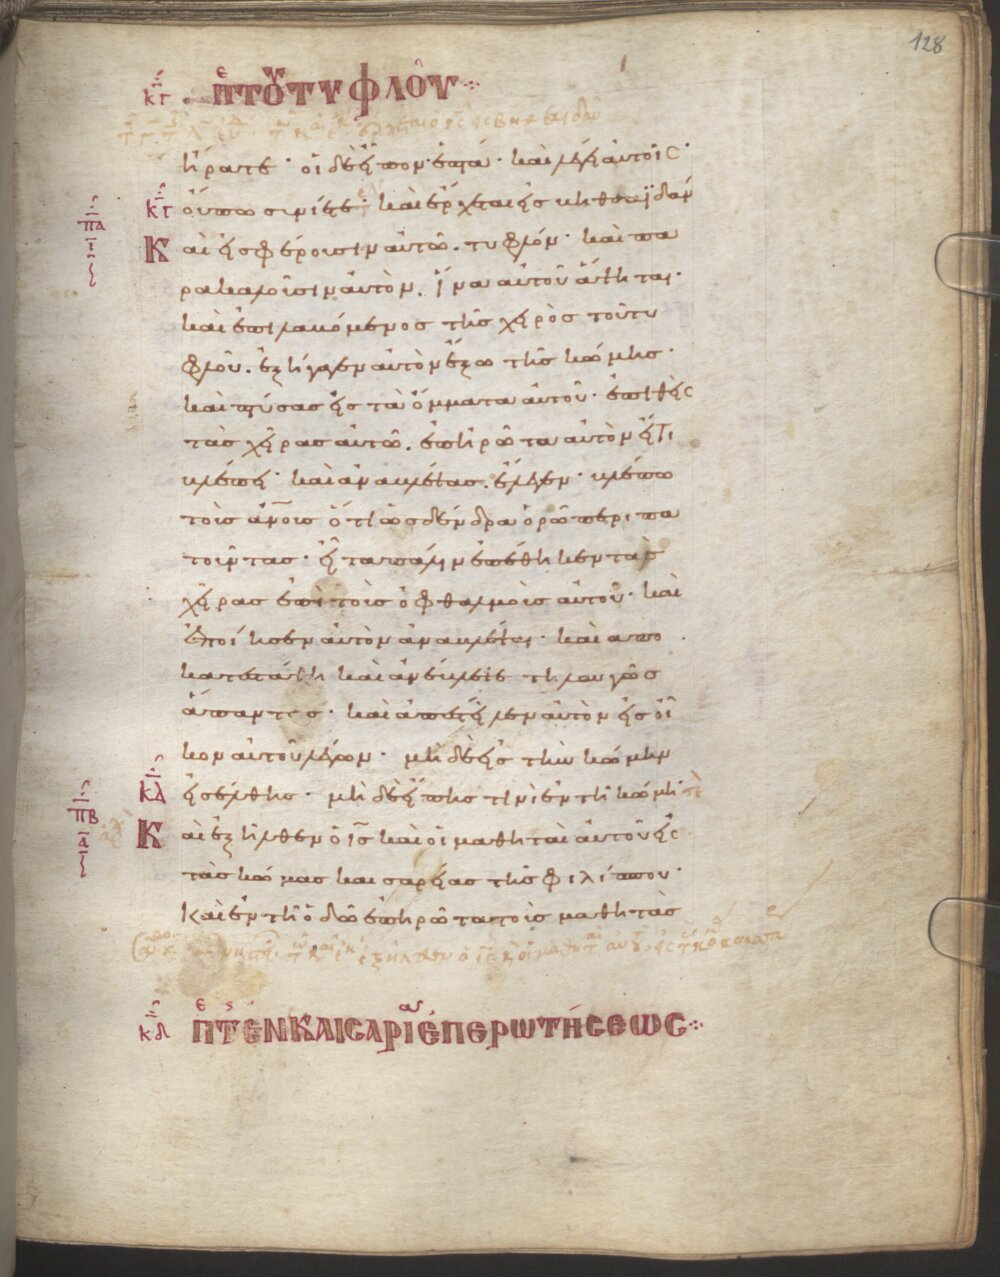 128
κγ πε τοῦ τυφλοῦ
ἔρχεται ὁ ις εἰς βηθσαιδὰν
ἤρατε· οἱ δὲ εἶπον· ἑπτά· καὶ λέγει αὐτοῖς·
κγ οὔπω συνίετε· καὶ ἔρχεται εἰς βηθσαϊδάν
πα Καὶ φέρουσιν αὐτῶ. τυφλόν· καὶ πα
ρακαλοῦσιν αὐτὸν. ἵνα αὐτοῦ ἅψηται·
καὶ ἐπιλαβόμενος τῆς χειρὸς τοῦ τυ
φλοῦ. ἐξήγαγεν αὐτὸν ἔξω τῆς κώμης·
καὶ πτύσας εἰς τὰ ὄμματα αὐτοῦ· ἐπιθεὶς
τὰς χεῖρας αὐτῶ. ἐπηρώτα αὐτὸν εἴ τι
βλέπει· καὶ ἀναβλέψας. ἔλεγεν· βλέπω
τοὺς ἀνους ὅτι ὡς δένδρα ὁρῶ περιπα
τοῦντας· εἶτα πάλιν ἐπέθηκεν τὰς
χεῖρας ἐπὶ τοὺς ὀφθαλμοὺς αὐτοῦ· καὶ
ἐποίησεν αὐτὸν ἀναβλέψαι· καὶ ἀπο
κατεστάθη καὶ ἀνέβλεψε τηλαυγῶς
ἅπαντας· καὶ ἀπέστειλεν αὐτὸν εἰς οἶ
κον αὐτοῦ λέγων· μὴ δὲ εἰς τὴν κώμην
κδ εἰσέλθης· μὴ δὲ εἴπης τινὶ ἐν τῆ κώμη·
πβ Καὶ ἐξῆλθεν ὁ ις καὶ οἱ μαθηταὶ αὐτοῦ εἰς
τὰς κώμας καισαρείας τῆς φιλίππου·
καὶ ἐν τῆ ὁδῶ ἐπηρώτα τοὺς μαθητὰς
ἐξῆλθεν ὁ ις καὶ οἱ μαθηταὶ αὐτοῦ εἰς
κδ πε τῆς ἐν καισαρία ἐπερωτήσεως